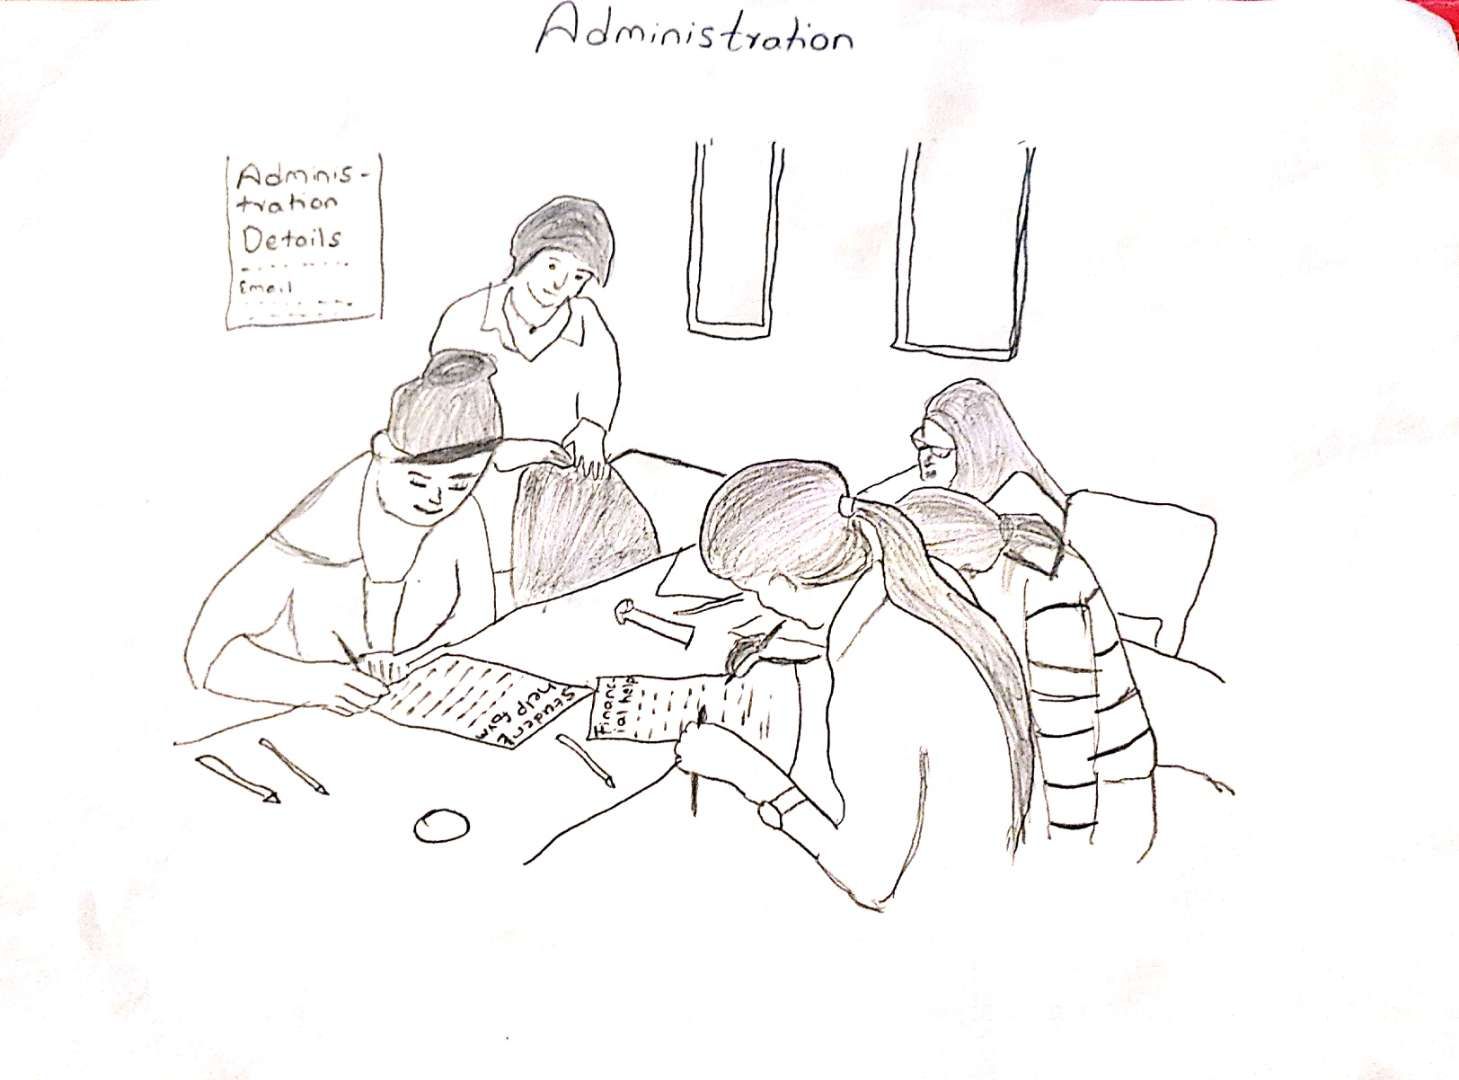 Administration
Adminis-
tration
Details
Email
Student
help form
Financ
ial help